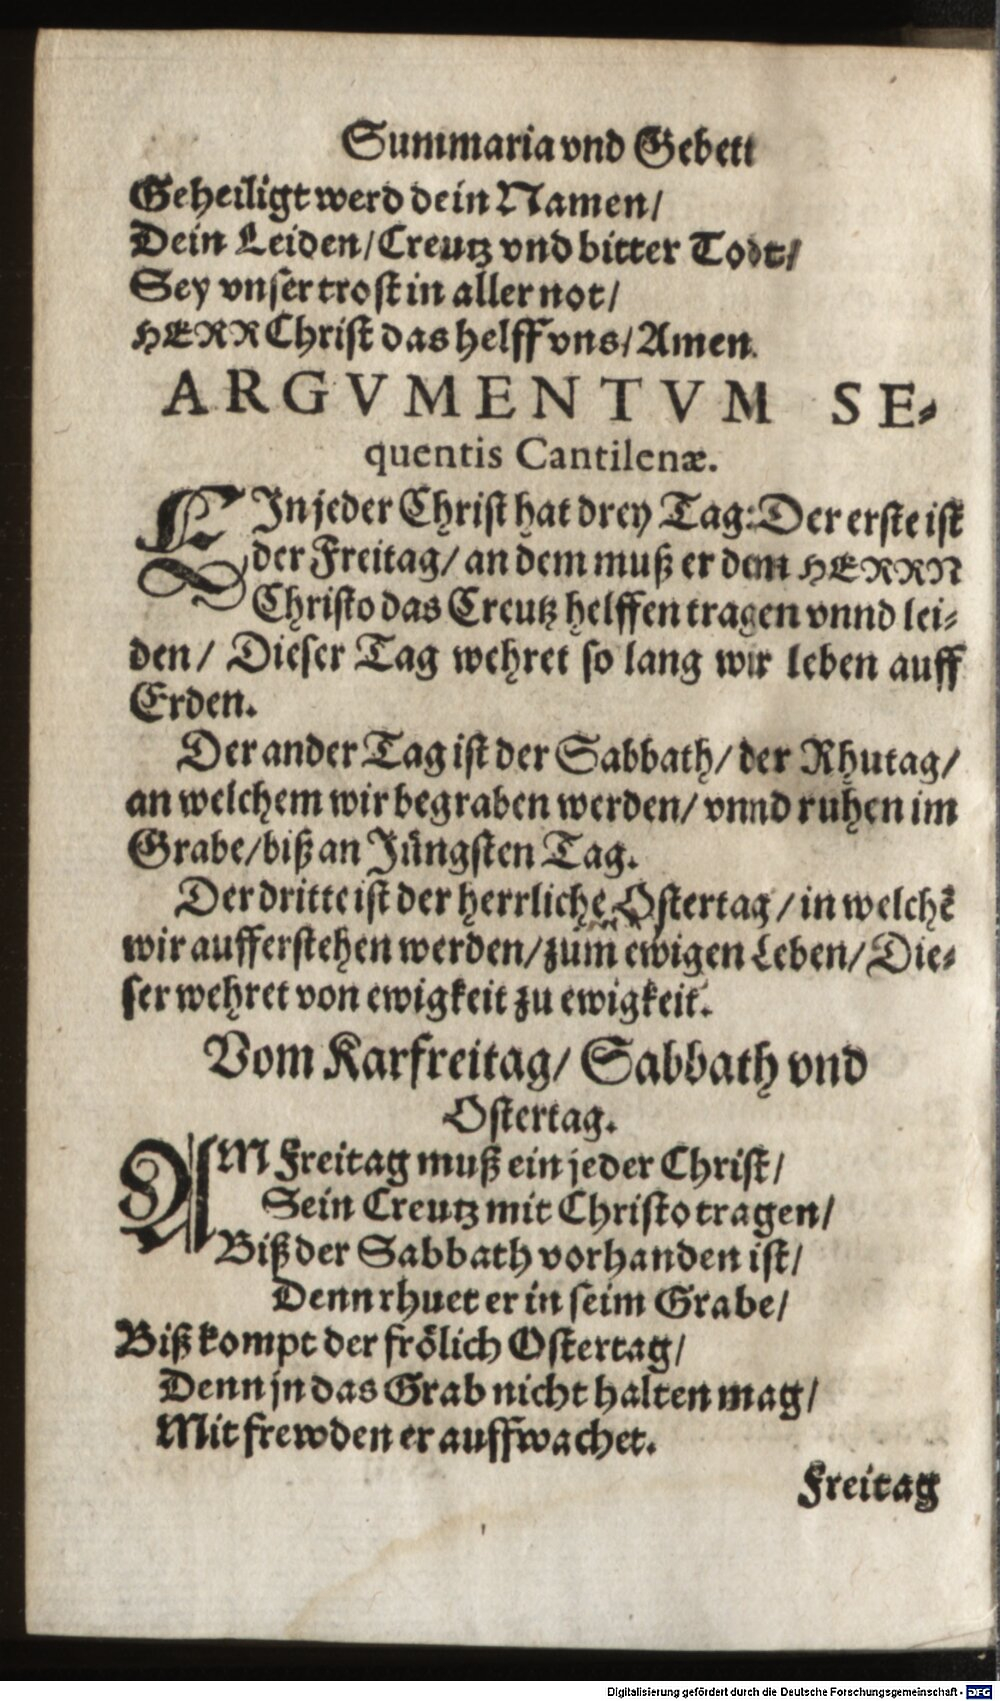 Summaria vnd Gebett
Geheiligt werd dein Namen/
Dein Leiden/Creutz vnd bitter Todt/
Sey vnser trost in aller not/
HERR Christ das helff vns/Amen.
ARGVMENTVM SE-
quentis Cantilenæ.
EIn jeder Christ hat drey Tag: Der erste ist
der Freitag/ an dem muß er dem HERRN
Christo das Creutz helffen tragen vnnd lei-
den/ Dieser Tag wehret so lang wir leben auff
Erden.
Der ander Tag ist der Sabbath/ der Rhutag/
an welchem wir begraben werden/ vnnd ruhen im
Grabe/biß an Jüngsten Tag.
Der dritte ist der herrliche Ostertag/in welchē
wir aufferstehen werden/zum ewigen Leben/Die-
ser wehret von ewigkeit zu ewigkeit.
Vom Karfreitag/ Sabbath vnd
Ostertag.
AM Freitag muß ein jeder Christ/
Sein Creutz mit Christo tragen/
Biß der Sabbath vorhanden ist/
Denn rhuet er in seim Grabe/
Biß kompt der frölich Ostertag/
Denn jn das Grab nicht halten mag/
Mit frewden er auffwachet.
Freitag
Digitalisierung gefördert durch die Deutsche Forschungsgemeinschaft - DFG